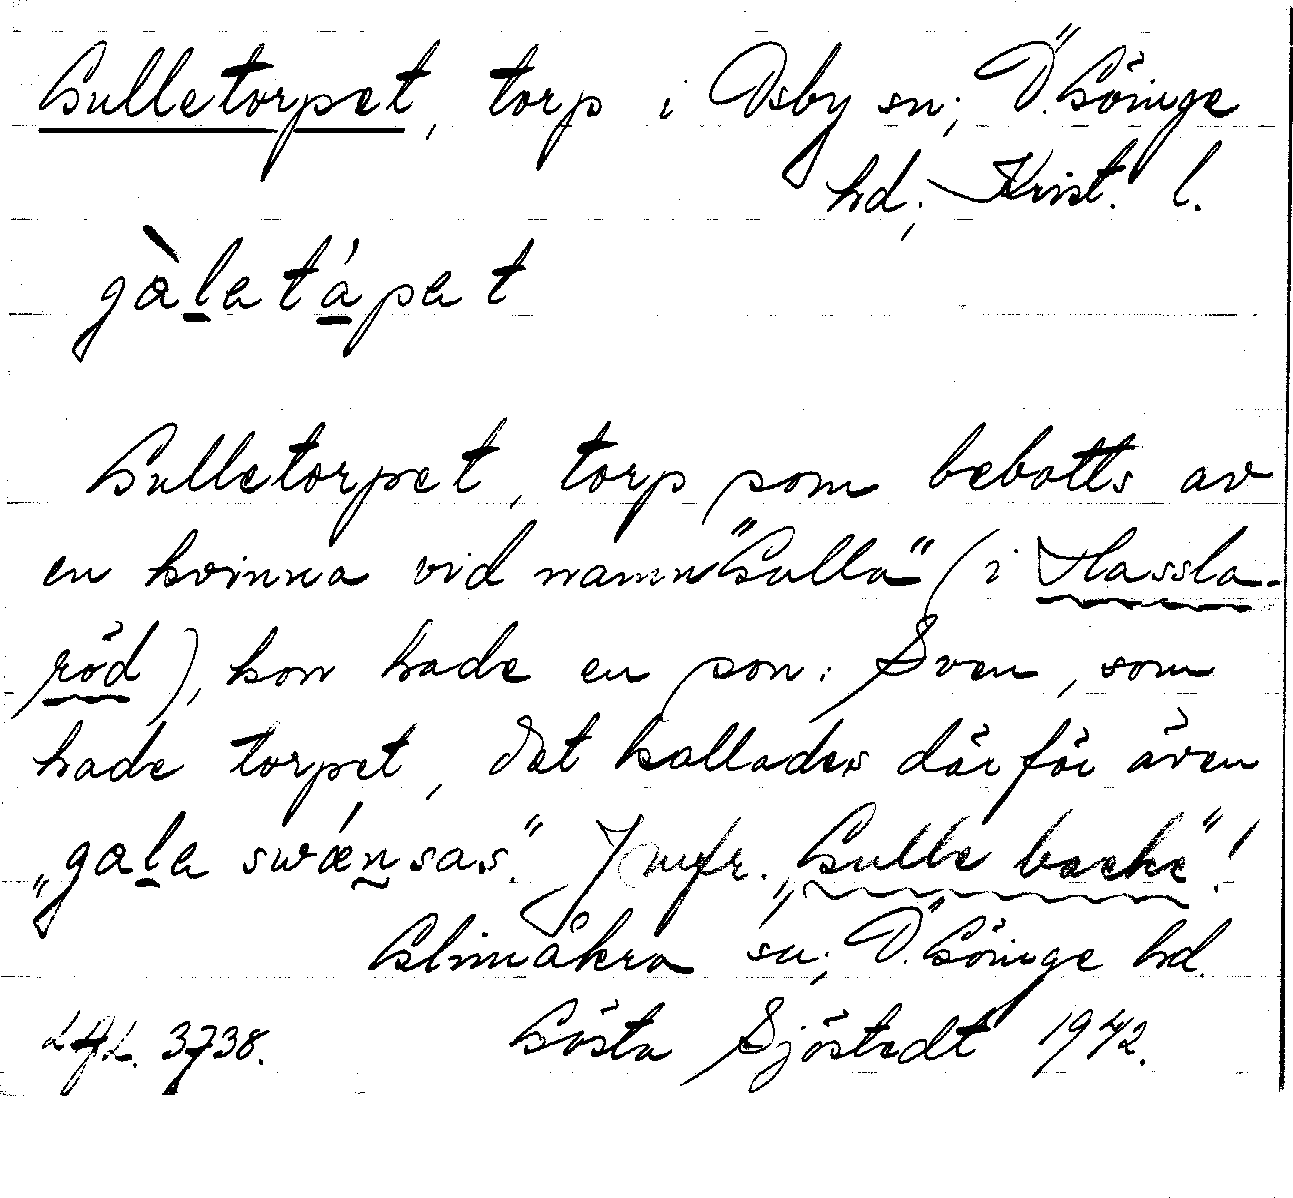 Gulletorpet, torp i Osby sn; Ö. Göinge
hd; Krist. l.
gàlatápat
Gulletorpet, torp som bebotts av
en kvinna vid namn "Gulla" (i Hassla-
röd), hon hade en son: Sven, som
hade torpet, det kallades därför även
"gala swænsas". Jmfr. "Gulle backe"!
Glimåkra sn; Ö. Göinge hd.
Gösta Sjöstedt 1942.
LAL. 3738.